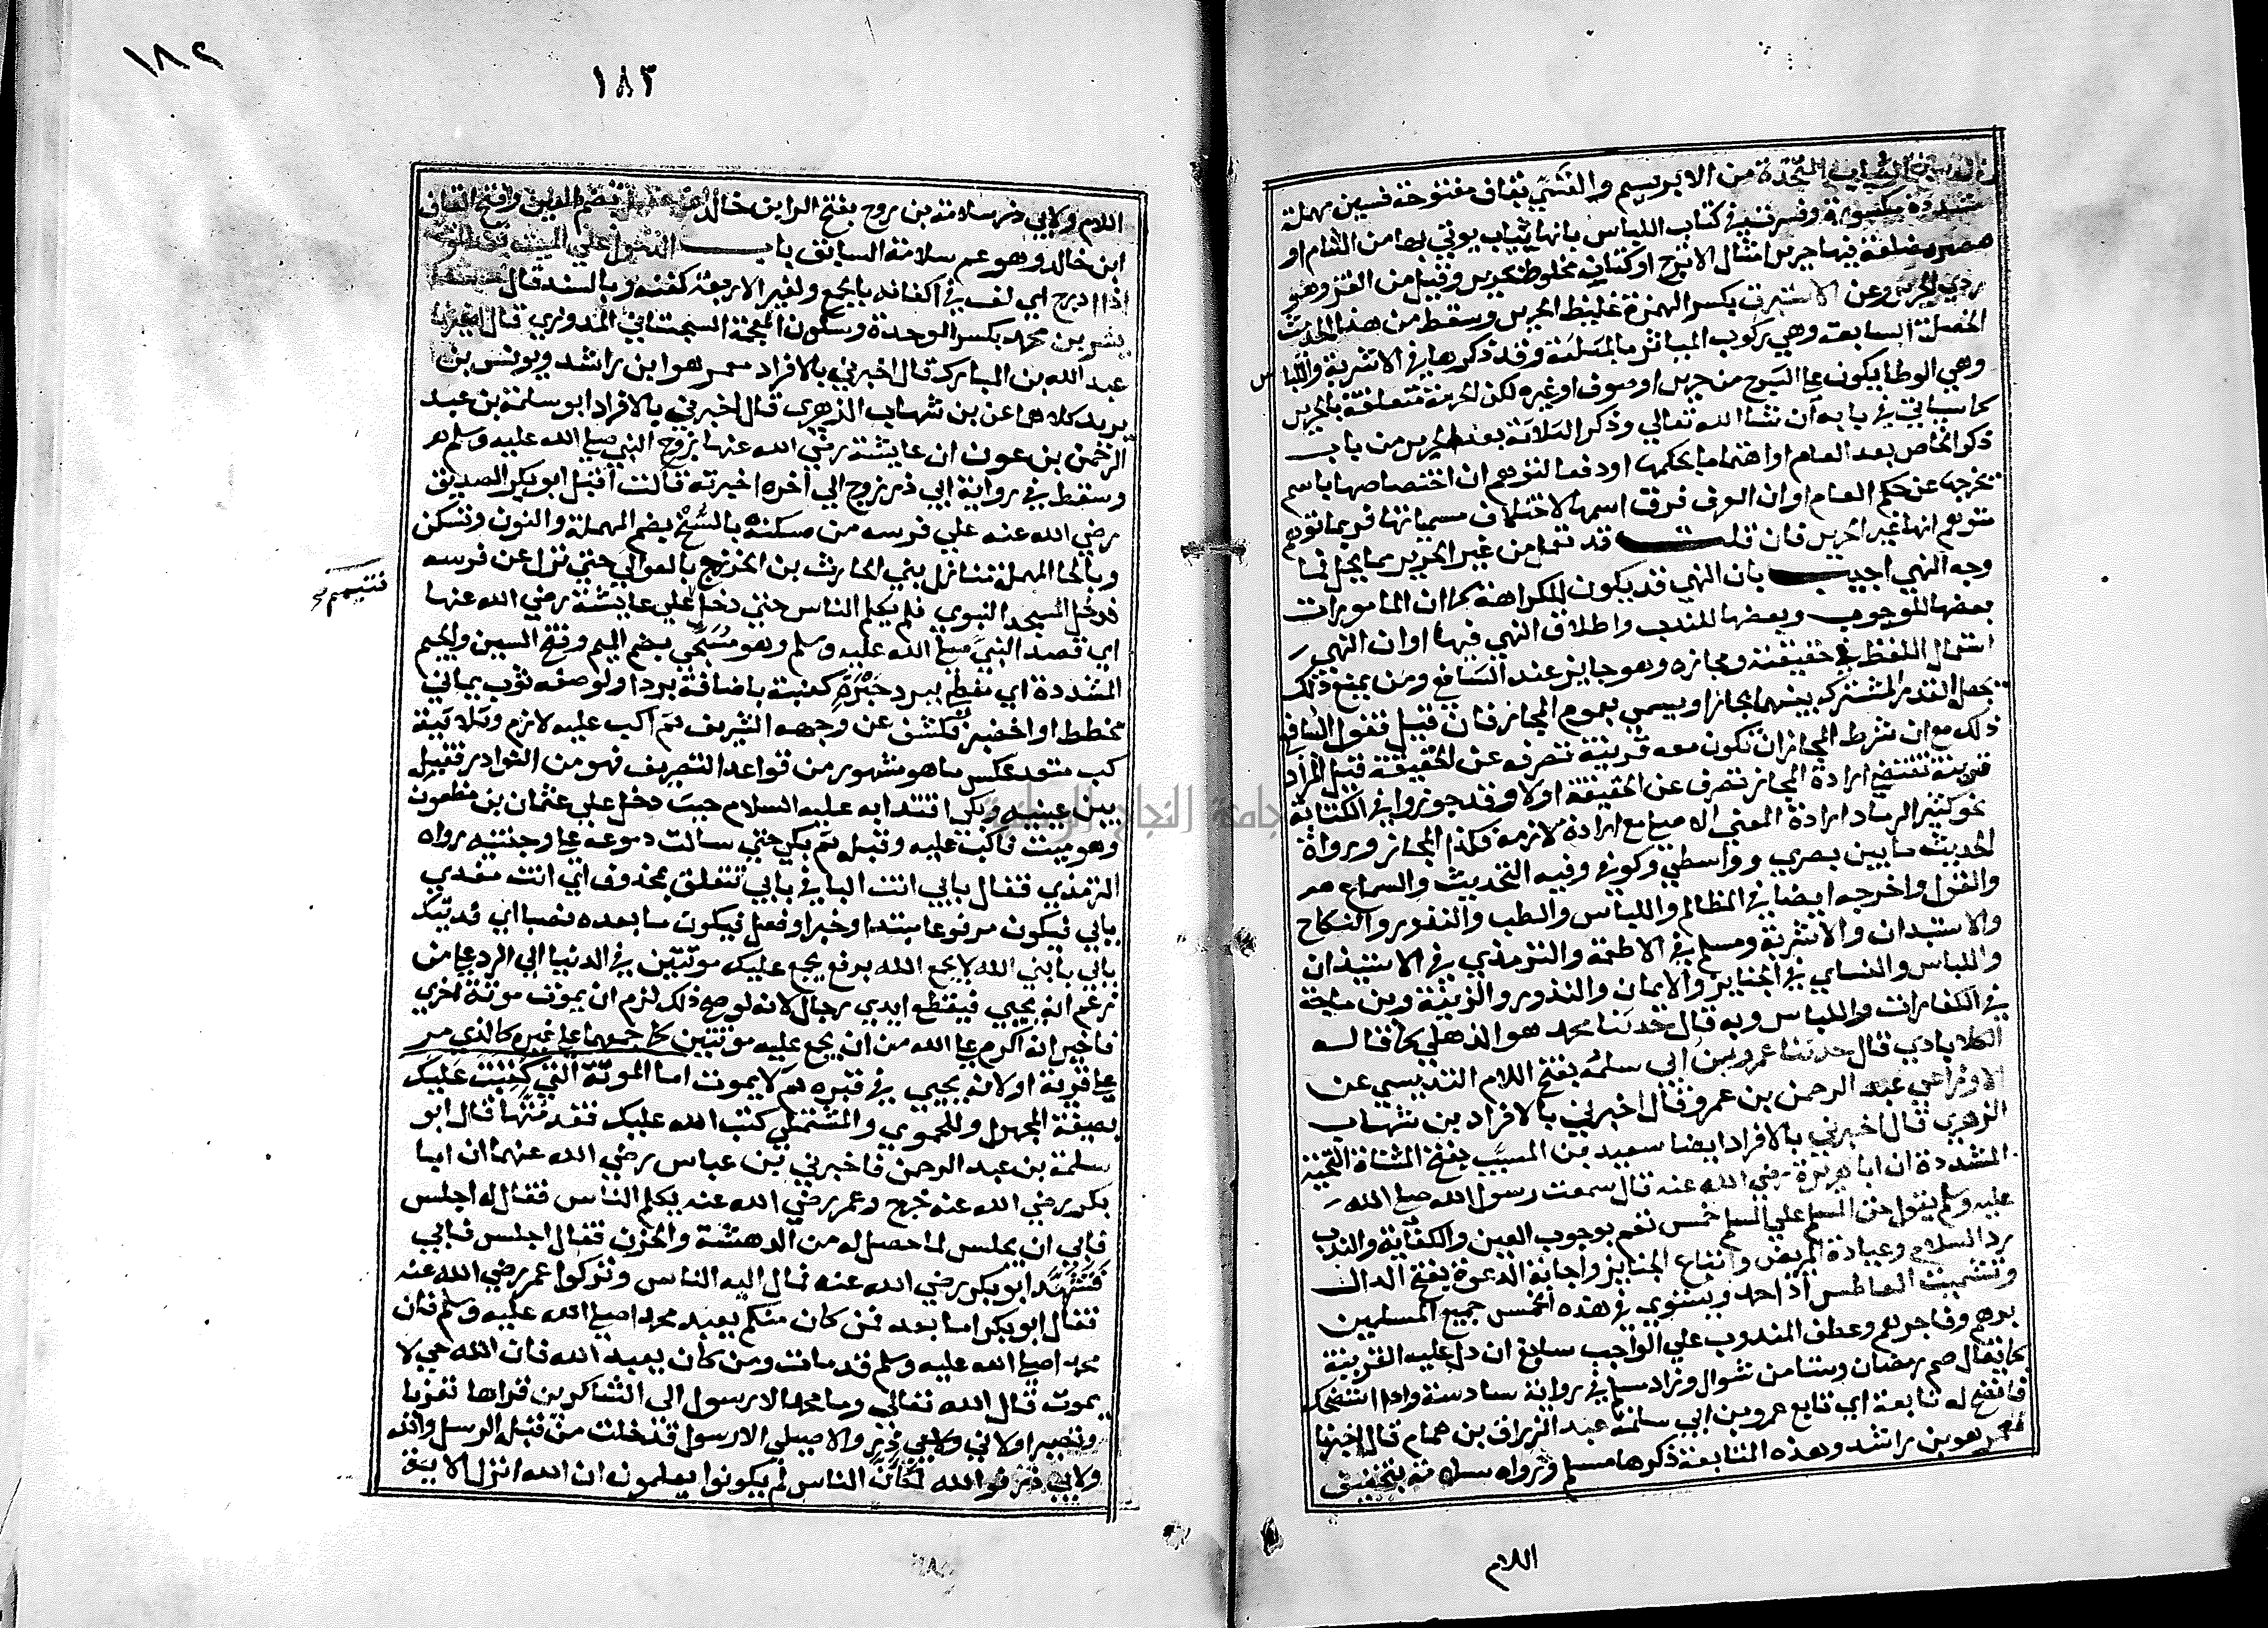 الثياب المتخذة من الابريسم والقسي بقاف مفتوحة فسين مهملة
مشددة مكسورة وفسرت في كتاب اللباس بانها ثياب يوتي بها من الشام او
مصر مضلعة فيها حرير امثال الاترج او كتان مخلوط بحرير وقيل من القز وهو
ردي الحرير وعن الاستبرق بكسر الهمزة غليظ الحرير وسقط من هذا الحديث
الخصلة السابعة وهي ركوب المياثر بالمثلثة وقد ذكرها في الاشربة واللباس
وهي الوطا يكون علي السرج من حرير او صوف او غيره لكن الحرمة متعلقة بالحرير
كما سياتي في بابه ان شا الله تعالي وذكر الثلاثة بعد الحرير من باب
ذكر الخاص بعد العام او اهتماما بحكمها او دفعا لتوهم ان اختصاصها باسم
تخرجه عن حكم العام او ان العرف فرق اسمها لاختلاف مسمياتها فربما توهم
متوهم انها غير الحرير فان قلت قد تعمل من غير الحرير مما يحل فما
وجه النهي اجيب بان النهي قد يكون للكراهة كما ان المامورات
بعضها للوجوب وبعضها للندب واطلاق النهي فيها او ان النهي
استعمال اللفظ في حقيقته ومجازه وهو جايز عند الشافعي ومن يمنع ذلك
يجعل القدر المشترك بينهما مجازا ويسمي بعموم المجاز فان قيل فقول الشافعي
ذلك مع ان شرط المجاز ان تكون معه قرينة تصرفه عن الحقيقة قيل المراد
قرينة تقتضي ارادة المجاز تصرف عن الحقيقة اولا وقد جوزوا في الكناية
نحو كثير الرماد ارادة المعني الاصلي مع ارادة لازمه فكذا المجاز ورواة
الحديث ما بين بصري وواسطي وكوفي وفيه التحديث والسماع
والقول واخرجه ايضا في المظالم واللباس والطب والنذور والنكاح
والاستيذان والاشربة ومسلم في الاطعمة والترمذي في الاستيذان
واللباس والنساي في الجنايز والايمان والنذور والزينة وبن ماجة
في الكفارات واللباس وبه قال حدثنا محمد هو الذهلي كما قاله
الكلاباذي قال حدثنا عمرو بن ابي سلمة بفتح اللام التنيسي عن
الاوزاعي عبد الرحمن بن عمرو قال اخبرني بالافراد بن شهاب
الزهري قال اخبرني بالافراد ايضا سعيد بن المسيب بفتح المثناة التحتية
المشددة ان ابا هريرة رضي الله عنه قال سمعت رسول الله صلي الله
عليه وسلم يقول حق المسلم علي المسلم خمس تعم بوجوب العين والكفاية والندب
رد السلام وعيادة المريض واتباع الجنايز واجابة الدعوة بفتح الدال
وتشميت العاطس اذا حمد ويستوي في هذه الخمس جميع المسلمين
برهم وفاجرهم وعطف المندوب علي الواجب سايغ ان دل عليه القرينة
كما يقال صم رمضان وستا من شوال وزاد مسلم في رواية سادسة واذا استنصحك
فانصح له تابعه اي تابع عمرو بن ابي سلمة عبد الرزاق بن همام قال اخبرنا
معمر هو بن راشد وهذه المتابعة ذكرها مسلم ورواه سلامة بتخفيف
اللام
١٨٣
١٨٤
اللام ولابي ذر سلامة بن روح بفتح الرا بن خالد عن عقيل بضم العين وفتح القاف
ابن خالد وهو عم سلامة السابق باب الدخول علي الميت بعد الموت
اذا ادرج اي لف في اكفانه بالجمع ولغير الاربعة كفنه وبالسند قال حدثنا
بشر بن محمد بكسر الموحدة وسكون المعجمة السجستاني المروزي قال اخبرنا
عبد الله بن المبارك قال اخبرني بالافراد معمر هو ابن راشد ويونس بن
يزيد كلاهما عن بن شهاب الزهري قال اخبرني بالافراد ابو سلمة بن عبد
الرحمن بن عوف ان عايشة رضي الله عنها زوج النبي صلي الله عليه وسلم
وسقط في رواية ابي ذر زوج الي اخره اخبرته قالت اقبل ابو بكر الصديق
رضي الله عنه علي فرسه من مسكنه بالسنح بضم المهملة والنون وتسكن
وبالحا المهملة منازل بني الحارث بن الخزرج بالعوالي حتي نزل عن فرسه
فدخل المسجد النبوي فلم يكلم الناس حتي دخل علي عايشة رضي الله عنها
فتيمم صح
اي قصد النبي صلي الله عليه وسلم وهو مسجي بضم الميم وفتح السين والجيم
المشددة اي مغطي ببرد حبرة كعنبة باضافة برد او لوصفه ثوب يماني
مخطط او اخضر فكشف عن وجهه الشريف ثم اكب عليه لازم وثلاثيه
كب متعد عكس ما هو مشهور من قواعد التصريف فهو من النوادر فقبله
بين عينيه وبكي اقتدا به عليه السلام حيث دخل علي عثمان بن مظعون
وهو ميت فاكب عليه وقبله ثم بكي حتي سالت دموعه علي وجنتيه رواه
الترمذي فقال بابي انت البا في بابي تتعلق بمحذوف اي انت مفدي
بابي فيكون مرفوعا مبتدا وخبرا او فعل فيكون ما بعده نصبا اي فديتك
بابي يا نبي الله لا يجمع الله برفع يجمع عليك موتتين في الدنيا الي الرد علي من
زعم انه يحيي فيقطع ايدي رجال لانه لو صح ذلك لزم ان يموت موتة اخري
فاخبر انه اكرم علي الله من ان يجمع عليه موتتين كما جمعهما علي غيره كالذي مر
علي قرية او لانه يحيي في قبره ثم لا يموت اما الموتة التي كتبت عليك
بصيغة المجهول وللحموي والمستملي كتب الله عليك فقد متها قال ابو
سلمة بن عبد الرحمن فاخبرني بن عباس رضي الله عنهما ان ابا
بكر رضي الله عنه خرج وعمر رضي الله عنه يكلم الناس فقال له اجلس
فابي ان يجلس لما حصل له من الدهشة والحزن فقال اجلس فابي
فتشهد ابو بكر رضي الله عنه فمال اليه الناس وتركوا عمر رضي الله عنه
فقال ابو بكر اما بعد فمن كان منكم يعبد محمدا صلي الله عليه وسلم فان
محمدا صلي الله عليه وسلم قد مات ومن كان يعبد الله فان الله حي لا
يموت قال الله تعالي وما محمد الا رسول الي الشاكرين قراها تعزيا
وتصبرا ولابي ذر والاصيلي الا رسول قد خلت من قبله الرسل والله
ولابي ذر فوالله لكان الناس لم يكونوا يعلمون ان الله انزل الاية
جامعة النجاح الوطنية